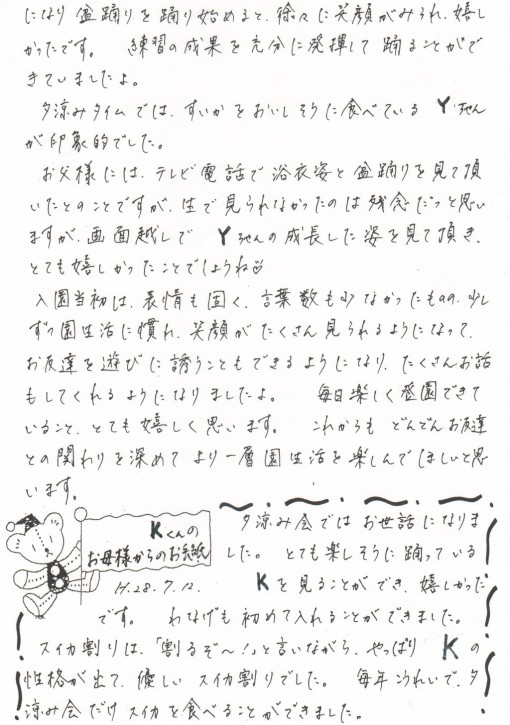 になり 盆踊りを踊り始めると、徐々に笑顔がみられ、嬉し
かったです。 練習の成果を充分に発揮して踊ることがで
きていましたよ。
夕涼みタイムでは、すいかをおいしそうに食べている Yちゃん
が印象的でした。
お父様には、テレビ電話で浴衣姿と盆踊りを見て頂
いたとのことですが、生で見られなかったのは残念だっと思い
ますが、画面越しで Yちゃんの成長した姿を見て頂き、
とても嬉しかったことでしょうね
入園当初は、表情も固く、言葉数も少なかったものの、少し
ずつ園生活に慣れ、笑顔がたくさん見られるようになって、
お友達を遊びに誘うこともできるようになり、たくさんお話
もしてくれるようになりましたよ。 毎日楽しく登園できて
いること、とても嬉しく思います。 これからも どんどんお友達
との関わりを深めて より一層園生活を楽しんでほしいと思
います。
Kくんの
お母様からのお手紙
H.28.7.12.
夕涼み会では お世話になりま
した。 とても楽しそうに踊っている
Kを見ることができ、嬉しかった
です。 わなげも初めて入れることができました。
スイカ割りは、「割るぞ〜!」と言いながら、やっぱり Kの
性格が出て、優しい スイカ割りでした。 毎年こうれいで、夕
涼み会だけスイカを食べることができました。